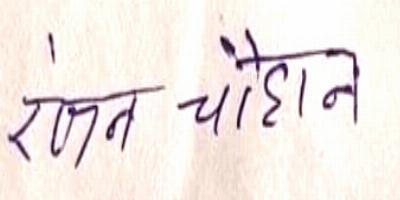 रंजन चौहान